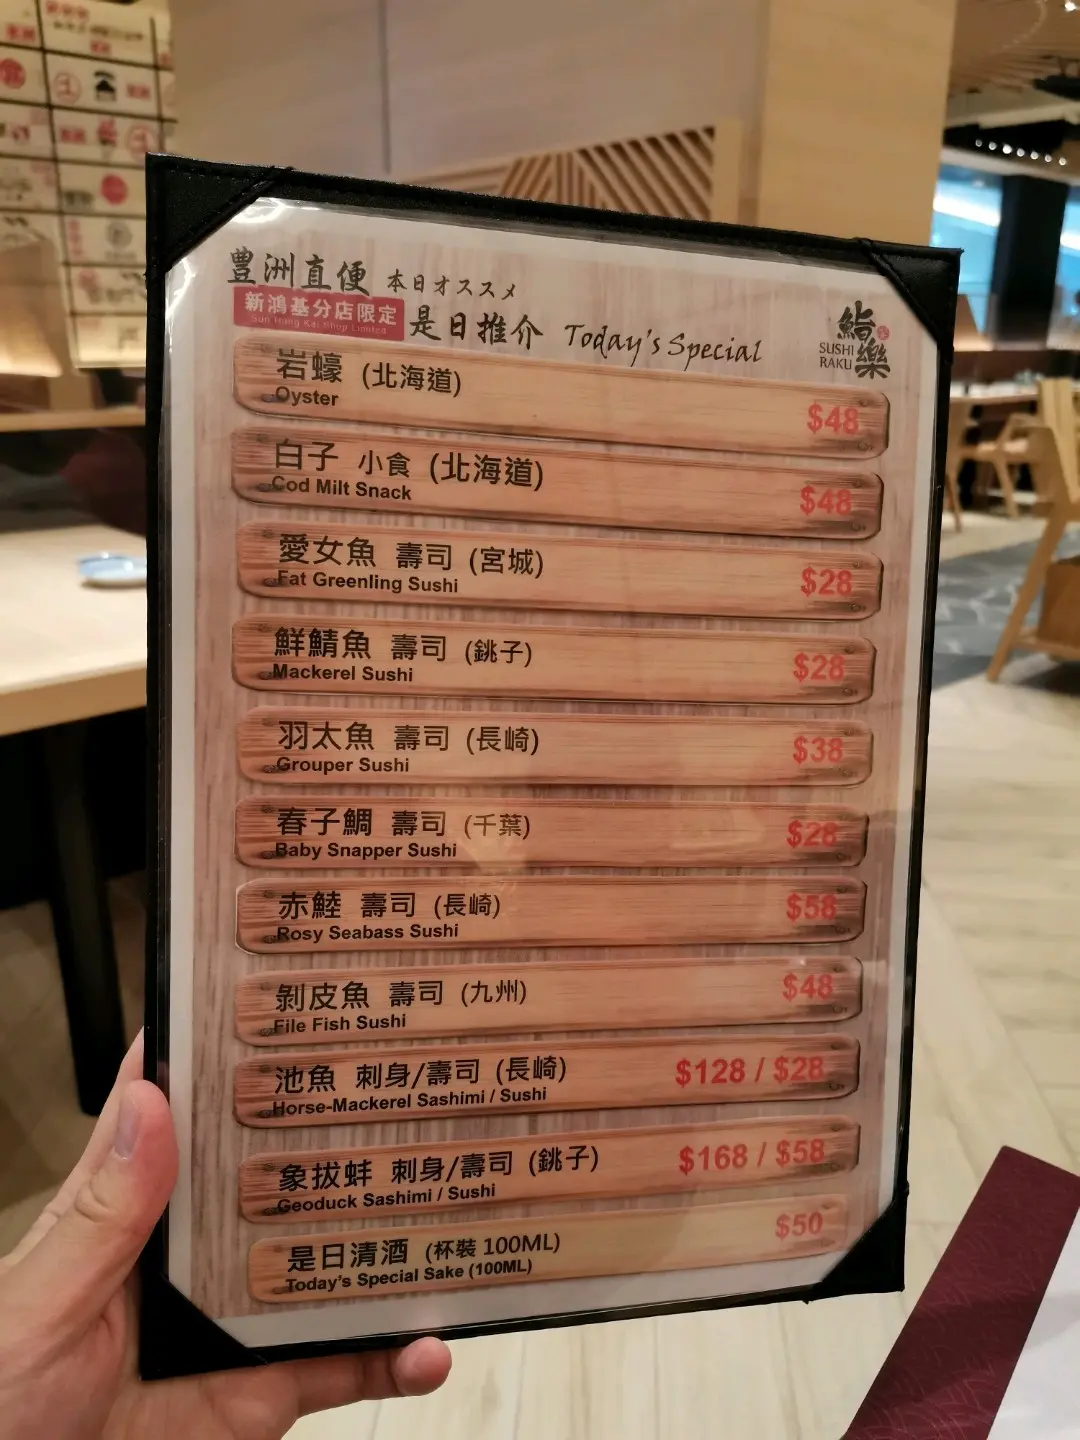 豊洲直便 本日オススメ
新鴻基分店限定
Sun Hung Kai Shop Limited
是日推介 Today's Special
鮨樂
SUSHI
RAKU
岩蠔 (北海道)
Oyster
$48
白子 小食 (北海道)
Cod Milt Snack
$48
愛女魚 壽司 (宮城)
Fat Greenling Sushi
$28
鮮鯖魚 壽司 (銚子)
Mackerel Sushi
$28
羽太魚 壽司 (長崎)
Grouper Sushi
$38
春子鯛 壽司 (千葉)
Baby Snapper Sushi
$28
赤鯥 壽司 (長崎)
Rosy Seabass Sushi
$58
剝皮魚 壽司 (九州)
File Fish Sushi
$48
池魚 刺身/壽司 (長崎)
Horse-Mackerel Sashimi / Sushi
$128 / $28
象拔蚌 刺身/壽司 (銚子)
Geoduck Sashimi / Sushi
$168 / $58
是日清酒 (杯裝 100ML)
Today's Special Sake (100ML)
$50